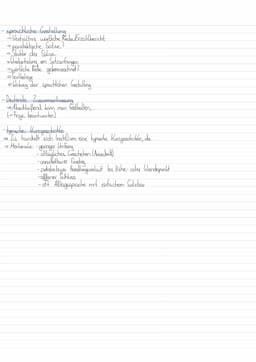 - sprachliche Gestaltung
→ Satzbau, wörtliche Rede, Erzählbericht
→ parataktische Sätze?
→ Länge der Sätze
→ Wiederholung an Satzanfängen
→ wörtliche Rede gekennzeichnet?
→ Wirkung der sprachlichen Gestaltung
- Deutende Zusammenfassung
→ Abschließend kann man festhalten,
(→ Frage beantworten)
- typische Kurzgeschichte
→ Es handelt sich hierbei um eine typische Kurzgeschichte, da
→ Merkmale: - geringer Umfang
- alltägliches Geschehen (Ausschnitt)
- unmittelbarer Einstieg
- Handlungsverlauf bis Höhe- oder Wendepunkt
- offener Schluss
- oft Alltagssprache mit einfachem Satzbau